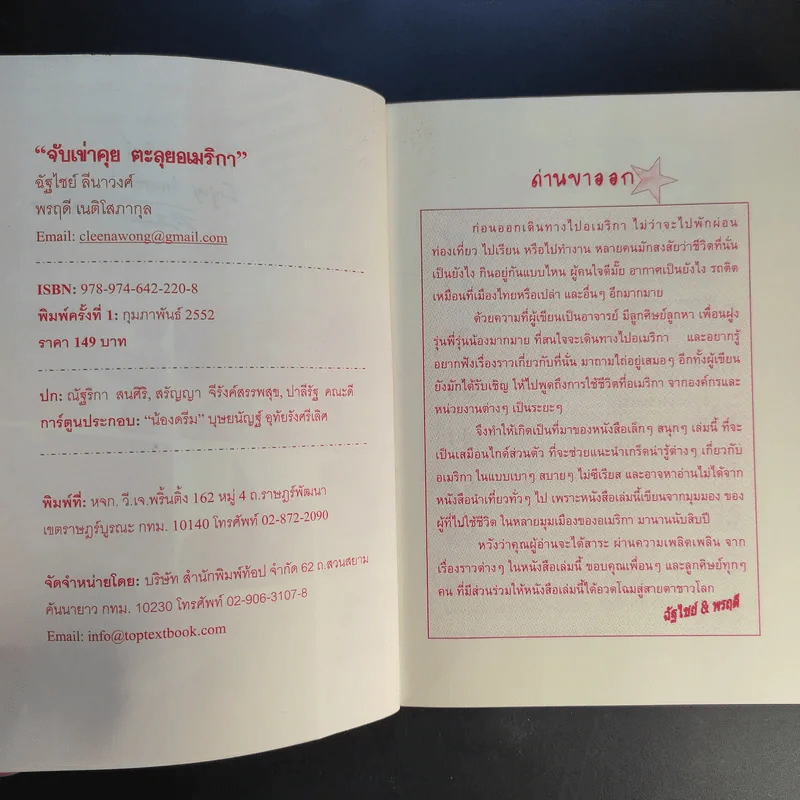 “จับเข่าคุย ตะลุยอเมริกา”
ฉัฐไชย์ ลีนาวงศ์
พรฤดี เนติโสภากุล
Email: cleenawong@gmail.com
ISBN: 978-974-642-220-8
พิมพ์ครั้งที่ 1: กุมภาพันธ์ 2552
ราคา 149 บาท
ปก: ณัฐริกา สนศิริ, สรัญญา จีรังค์สรรพสุข, ปาลีรัฐ คณะดี
การ์ตูนประกอบ: “น้องดรีม” บุษยนัญฐ์ อุทัยรังศรีเลิศ
พิมพ์ที่: หจก. วี.เจ.พริ้นติ้ง 162 หมู่ 4 ถ.ราษฎร์พัฒนา
เขตราษฎร์บูรณะ กทม. 10140 โทรศัพท์ 02-872-2090
จัดจำหน่ายโดย: บริษัท สำนักพิมพ์ท้อป จำกัด 62 ถ.สวนสยาม
คันนายาว กทม. 10230 โทรศัพท์ 02-906-3107-8
Email: info@toptextbook.com
ด่านขาออก
ก่อนออกเดินทางไปอเมริกา ไม่ว่าจะไปพักผ่อน
ท่องเที่ยว ไปเรียน หรือไปทำงาน หลายคนมักสงสัยว่าชีวิตที่นั่น
เป็นยังไง กินอยู่กันแบบไหน ผู้คนใจดีมั้ย อากาศเป็นยังไง รถติด
เหมือนที่เมืองไทยหรือเปล่า และอื่นๆ อีกมากมาย
ด้วยความที่ผู้เขียนเป็นอาจารย์ มีลูกศิษย์ลูกหา เพื่อนฝูง
รุ่นพี่รุ่นน้องมากมาย ที่สนใจจะเดินทางไปอเมริกา และอยากรู้
อยากฟังเรื่องราวเกี่ยวกับที่นั่น มาถามไถ่อยู่เสมอๆ อีกทั้งผู้เขียน
ยังมักได้รับเชิญ ให้ไปพูดถึงการใช้ชีวิตที่อเมริกา จากองค์กรและ
หน่วยงานต่างๆ เป็นระยะๆ
จึงทำให้เกิดเป็นที่มาของหนังสือเล็กๆ สนุกๆ เล่มนี้ ที่จะ
เป็นเสมือนไกด์ส่วนตัว ที่จะช่วยแนะนำเกร็ดน่ารู้ต่างๆ เกี่ยวกับ
อเมริกา ในแบบเบาๆ สบายๆ ไม่ซีเรียส และอาจหาอ่านไม่ได้จาก
หนังสือนำเที่ยวทั่วๆ ไป เพราะหนังสือเล่มนี้เขียนจากมุมมอง ของ
ผู้ที่ไปใช้ชีวิต ในหลายมุมเมืองของอเมริกา มานานนับสิบปี
หวังว่าคุณผู้อ่านจะได้สาระ ผ่านความเพลิดเพลิน จาก
เรื่องราวต่างๆ ในหนังสือเล่มนี้ ขอบคุณเพื่อนๆ และลูกศิษย์ทุกๆ
คน ที่มีส่วนร่วมให้หนังสือเล่มนี้ได้อวดโฉมสู่สายตาชาวโลก
ฉัฐไชย์ & พรฤดี